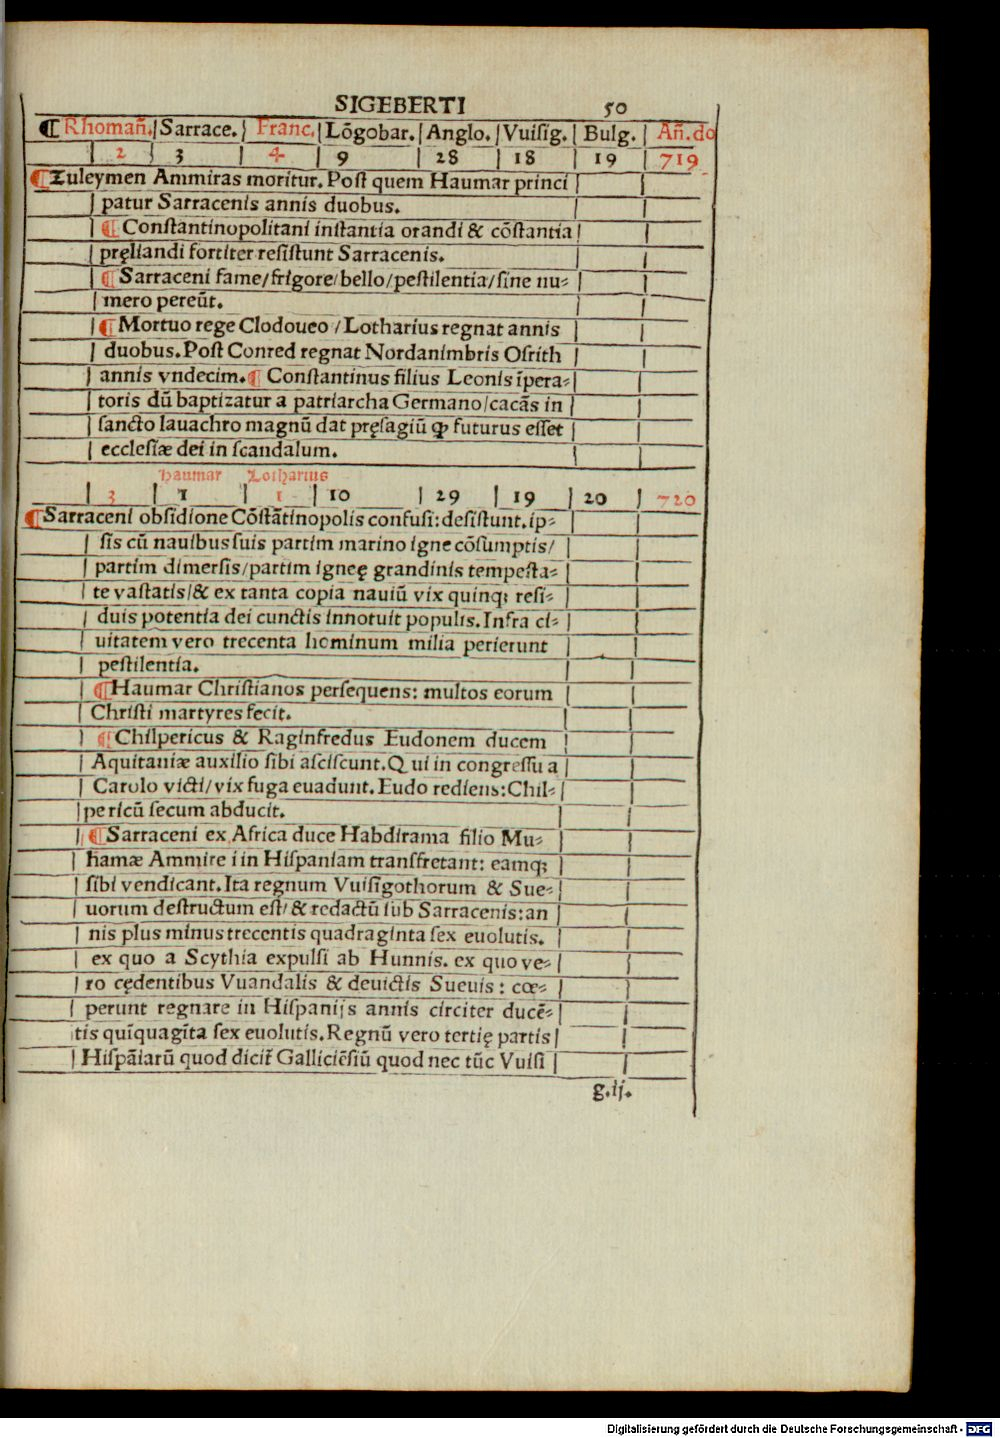 SIGEBERTI 50
¶ Rhomañ. | Sarrace. | Franc. | Lõgobar. | Anglo. | Vuiſig. | Bulg. | Añ.do
| 2 | 3 | 4 | 9 | 28 | 18 | 19 | 719
¶Zuleymen Ammiras moritur. Poſt quem Haumar princi
patur Sarracenis annis duobus.
¶ Conſtantinopolitani inſtantia orandi & cõſtantia
pręliandi fortiter reſiſtunt Sarracenis.
¶Sarraceni fame/frigore/bello/peſtilentia/ſine nu⸗
mero pereũt.
¶Mortuo rege Clodoueo/Lotharius regnat annis
duobus. Poſt Conred regnat Nordanimbris Oſrith
annis vndecim.¶ Conſtantinus filius Leonis ĩpera⸗
toris dũ baptizatur a patriarcha Germano/cacãs in
ſancto lauachro magnũ dat pręſagiũ ꝙ futurus eſſet
eccleſiæ dei in ſcandalum.
Haumar Lotharius
| 3 | 1 | 1 | 10 | 29 | 19 | 20 | 720
¶Sarraceni obſidione Cõſtãtinopolis confuſi: deſiſtunt. ip⸗
ſis cũ nauibus ſuis partim marino igne cõſumptis/
partim dimerſis/partim igneę grandinis tempeſta⸗
te vaſtatis/& ex tanta copia nauiũ vix quinqꝫ reſi⸗
duis potentia dei cunctis innotuit populis. Infra ci⸗
uitatem vero trecenta hominum milia perierunt
peſtilentia.
¶Haumar Chriſtianos perſequens: multos eorum
Chriſti martyres fecit.
¶Chilpericus & Raginfredus Eudonem ducem
Aquitaniæ auxilio ſibi aſciſcunt. Qui in congreſſu a
Carolo victi/vix fuga euadunt. Eudo rediens: Chil⸗
pericũ ſecum abducit.
¶Sarraceni ex Africa duce Habdirama filio Mu⸗
hamæ Ammire i in Hiſpaniam tranſfretant: eamqꝫ
ſibi vendicant. Ita regnum Vuiſigothorum & Sue⸗
uorum deſtructum eſt/& redactũ ſub Sarracenis: an
nis plus minus trecentis quadraginta ſex euolutis.
ex quo a Scythia expulſi ab Hunnis. ex quo ve⸗
ro cędentibus Vuandalis & deuictis Sueuis: cœ⸗
perunt regnare in Hiſpanijs annis circiter ducẽ⸗
tis quĩquagĩta ſex euolutis. Regnũ vero tertię partis
Hiſpãiarũ quod dicit̃ Galliciẽſiũ quod nec tũc Vuiſi
g.ij.
Digitalisierung gefördert durch die Deutsche Forschungsgemeinschaft - DFG